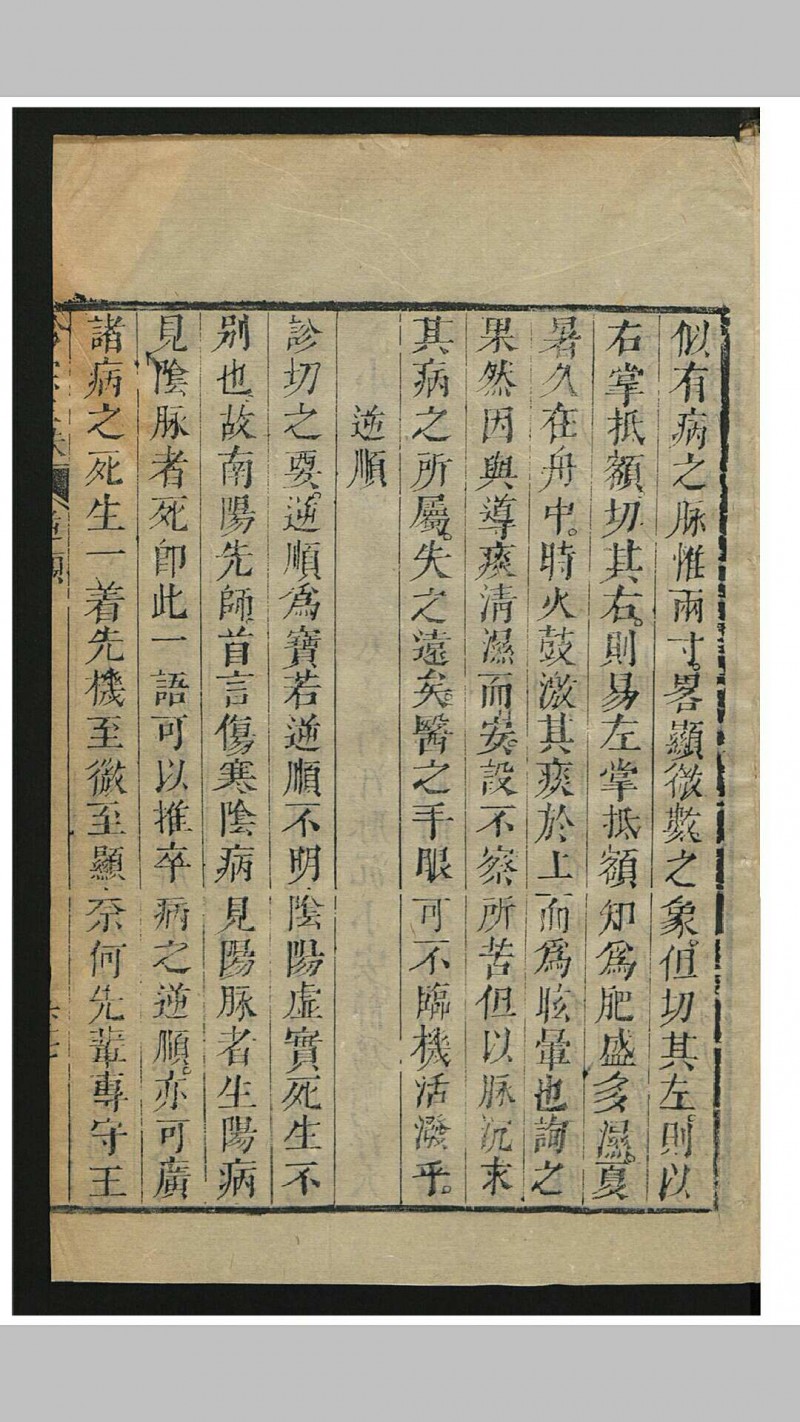 似有病之脉惟兩寸畧顯微數之象但切其左則以
右掌抵額切其右則易左掌抵額知爲肥盛多濕夏
暑久在舟中時火鼓激其痰於上而爲眩暈也詢之
果然因與導痰清濕而安設不察所苦但以脉沉求
其病之所屬失之遠矣醫之手眼可不臨機活潑乎
逆順
診切之要逆順爲寶若逆順不明陰陽虛實死生不
别也故南陽先師首言傷寒陰病見陽脉者生陽病
見陰脉者死卽此一語可以推卒病之逆順亦可廣
諸病之死生一着先機至微至顯奈何先輩專守王